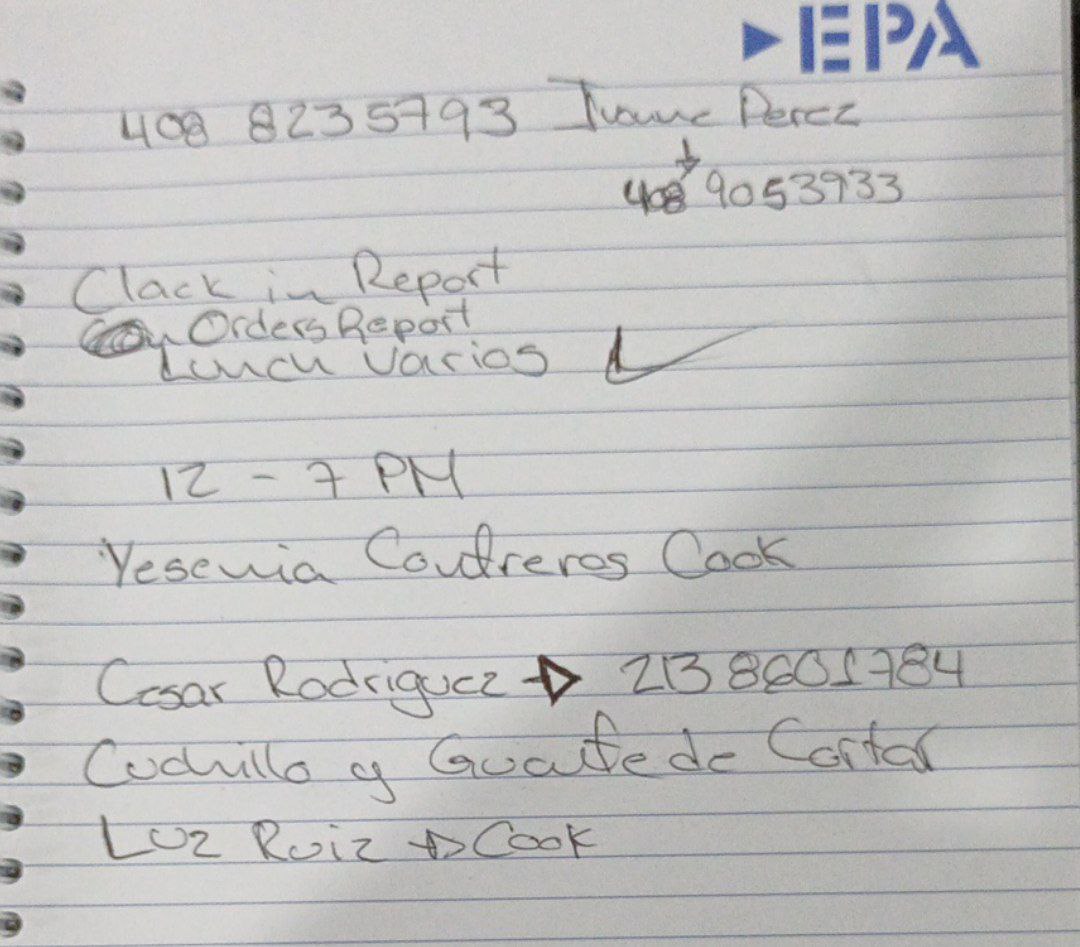 EPA
408 8235793 Ivonne Perez
408 9053933
Clack in Report
Orders Report
Lunch varios
12 - 7 PM
Yesenia Contreras Cook
Cesar Rodriguez 213 8601784
Cuchillo y Guante de Cortar
Luz Ruiz Cook